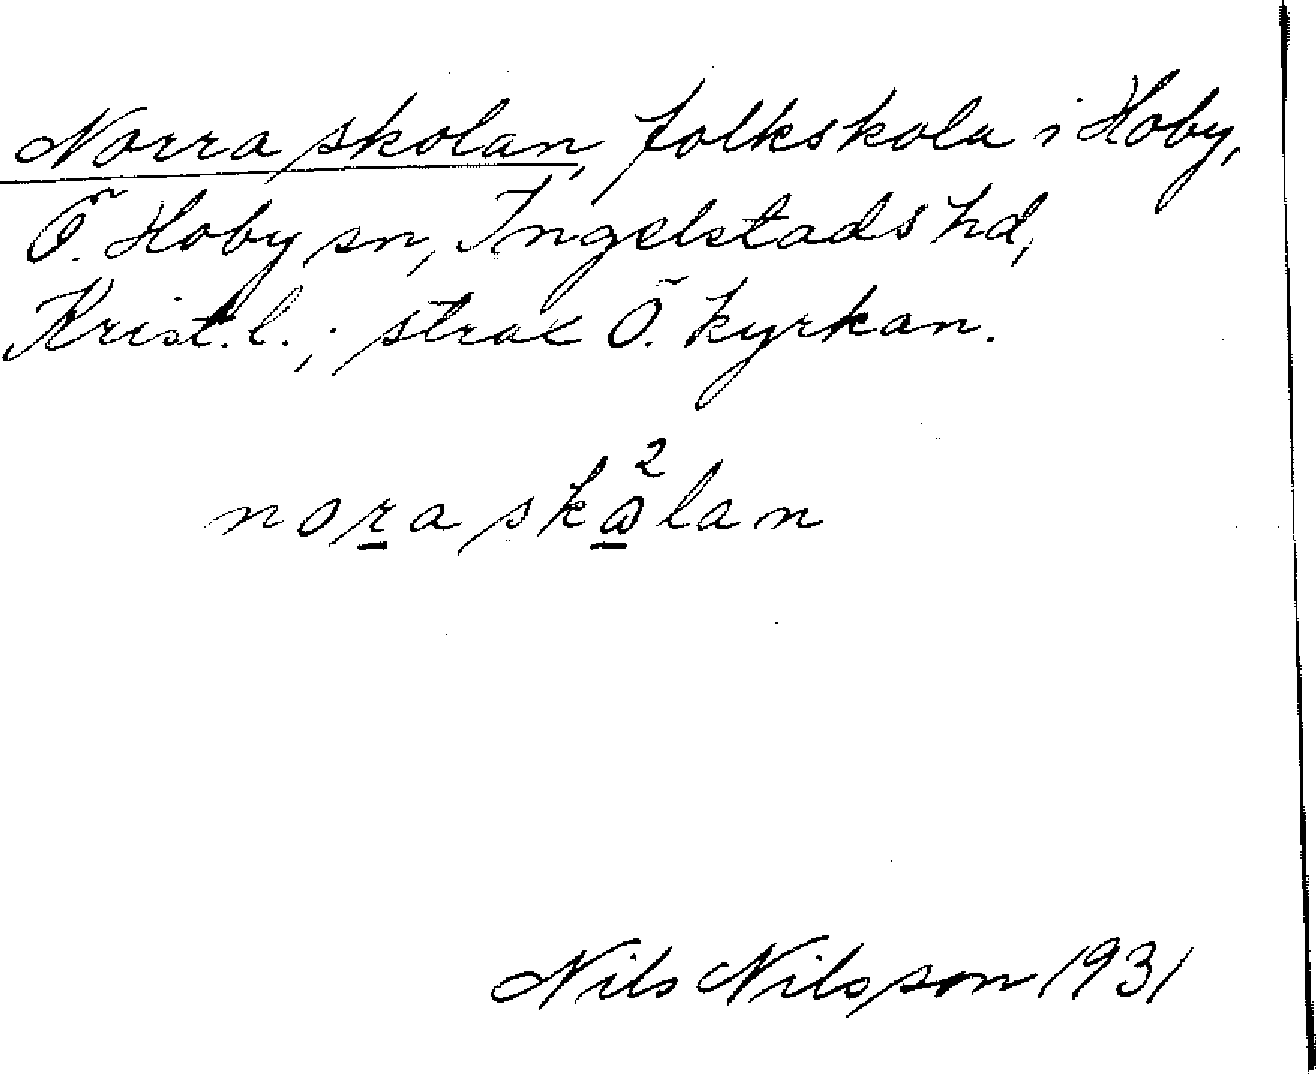 Norra skolan, folkskola i Hoby,
Ö. Hoby sn, Ingelstads hd,
Krist. l.; strax Ö. kyrkan.
2
nora skωlan
Nils Nilsson 1931